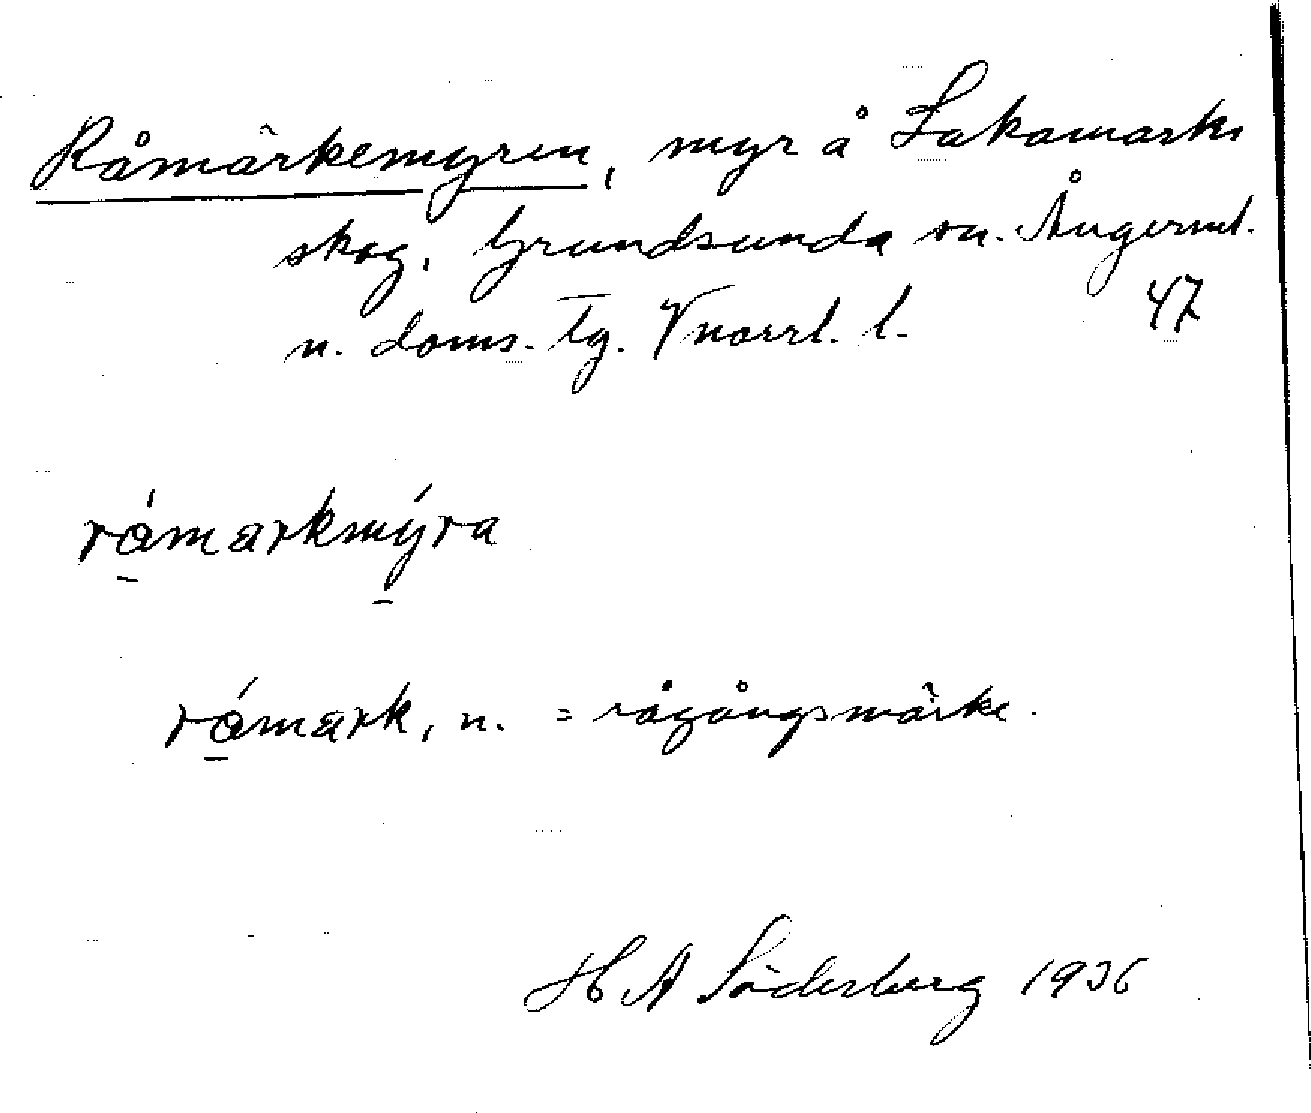 Råmärkemyren, myr å Lakamarks
skog, Grundsunda sn. Ångerml.
n. doms. tg. Vnorrl. l. 47
råmarkmýra
råmark, n. = rågångsmärke.
H A Söderberg 1936